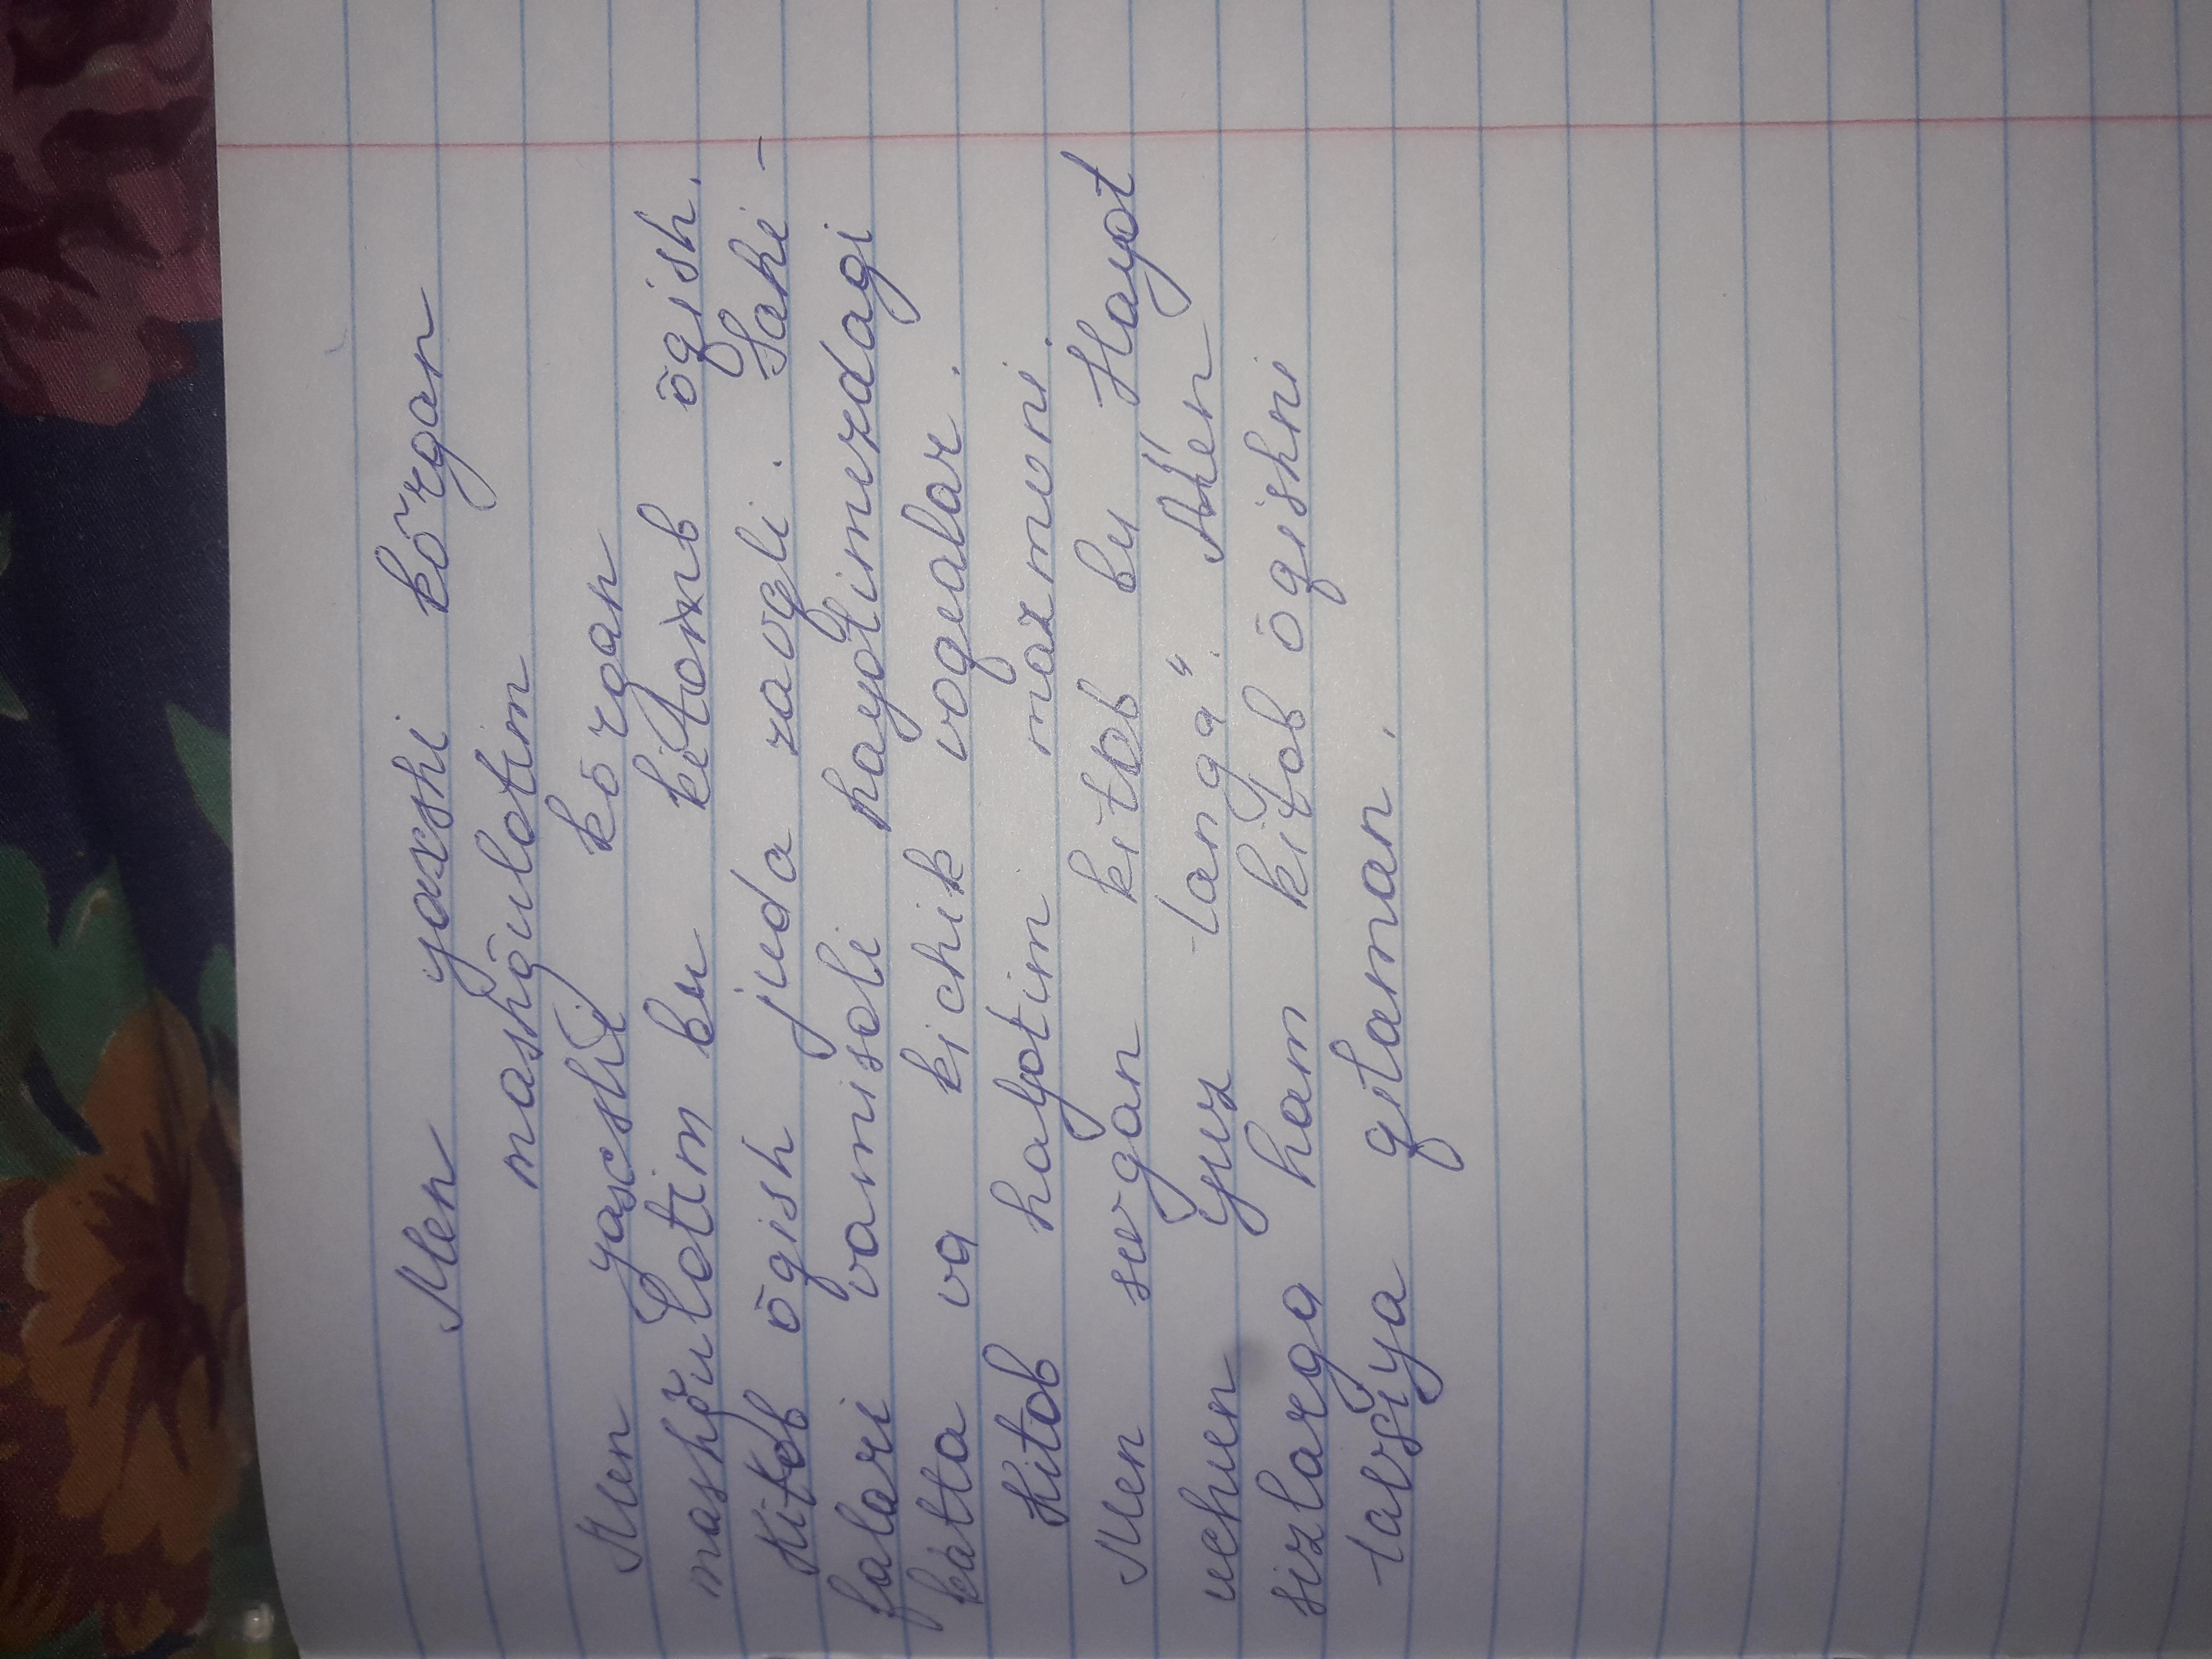 Men yaxshi kõrgan
mashğulotim
Men yaxshi kõrgan
mashğulotim bu kitob õqish.
Kitob õqish juda zavqli. Sahi-
falari vamisoli hayotimizdagi
katta va kichik voqealar.
Kitob hayotim mazmuni.
Men sevgan kitob bu Hayot
uchun yuz tanga". Men
sizlarga ham kitob õqishni
tavsiya qilaman.